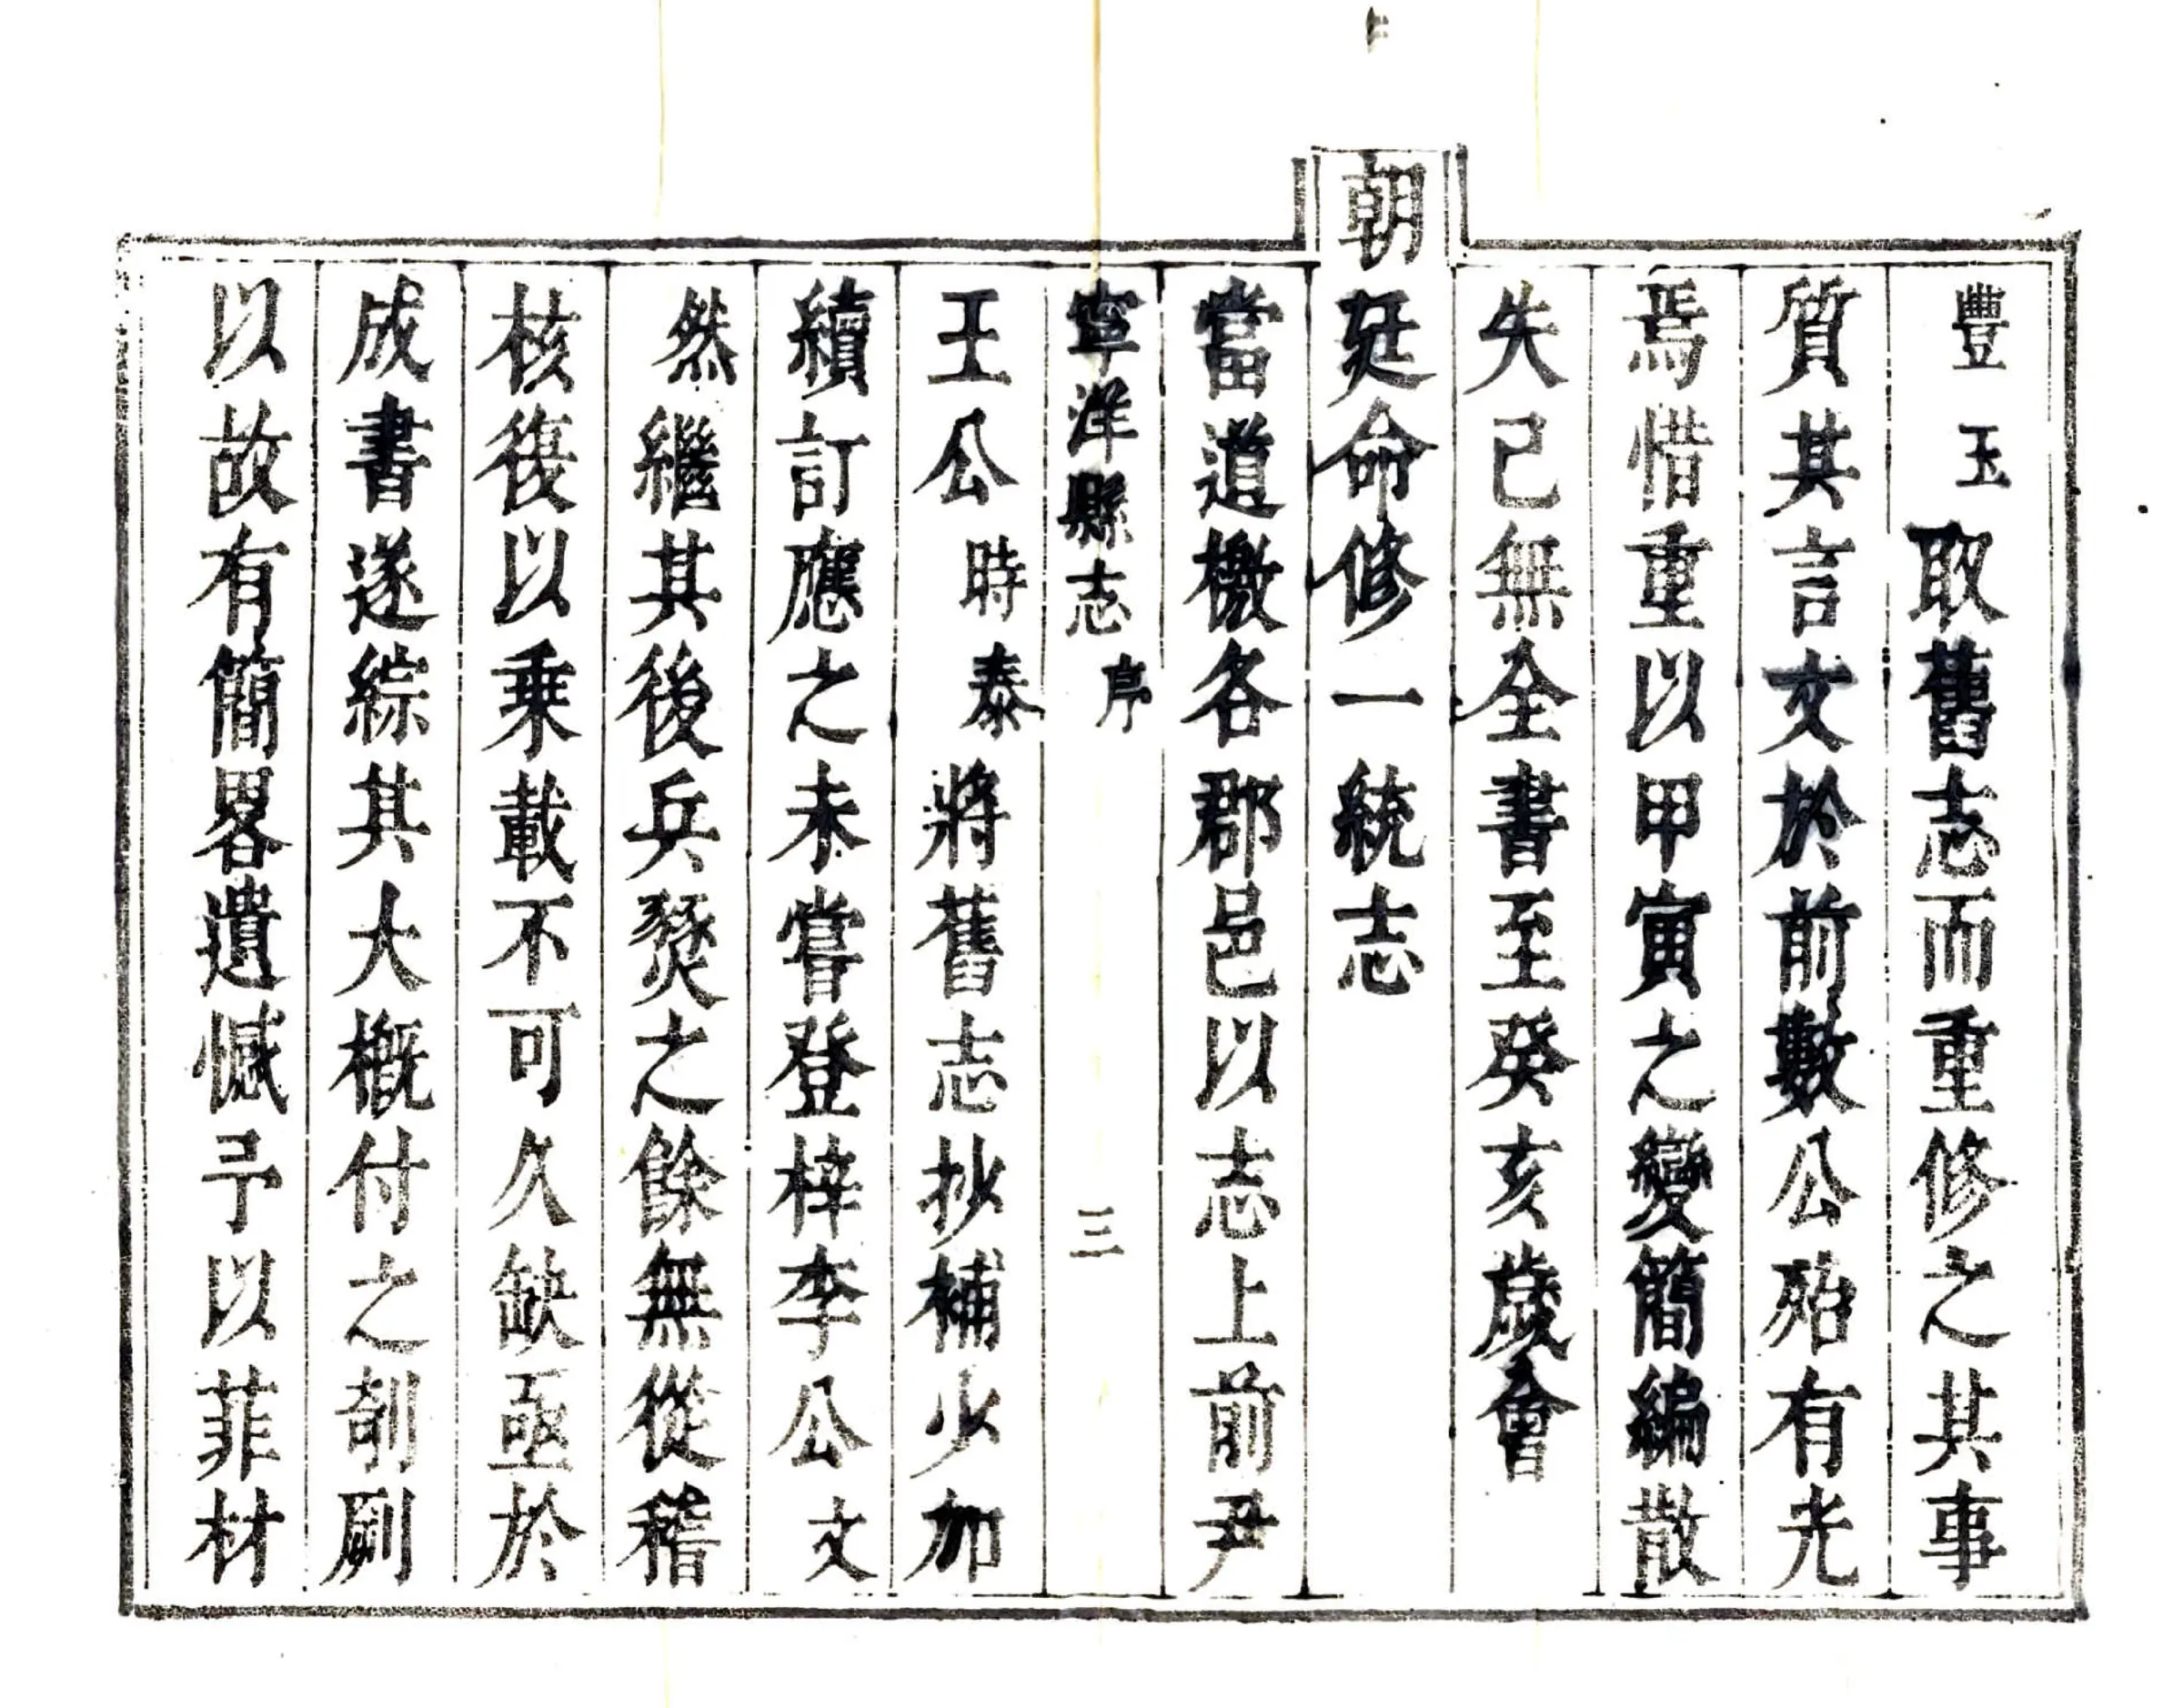 豐玉取舊志而重修之其事
質其言文於前數公殆有光
焉惜重以甲寅之變簡編散
失已無全書至癸亥歲會
朝廷命修一統志
當道檄各郡邑以志上前尹
寧洋縣志 序 三
王公時泰將舊志抄補少加
續訂應之未嘗登梓李公文
然繼其後兵燹之餘無從稽
核復以乘載不可久缺亟於
成書遂綜其大概付之剞劂
以故有簡畧遺憾予以菲材